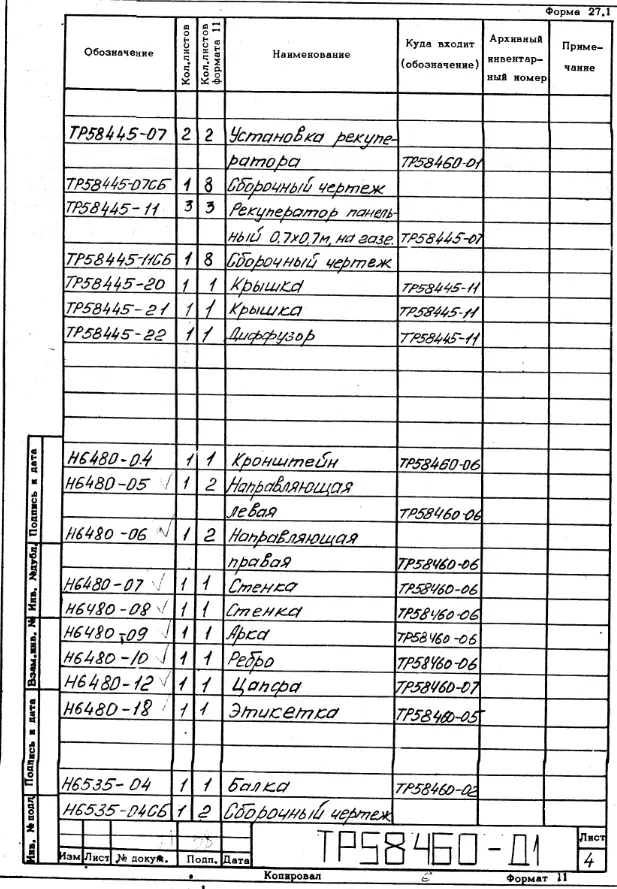 Форма 27.1
Обозначение Кол.листов Кол.листов формата 11 Наименование Куда входит (обозначение) Архивный инвентарный номер Примечание
ТР58445-07 2 2 Установка рекупе-
ратора ТР58460-01
ТР58445-07СБ 1 8 Сборочный чертеж
ТР58445-11 3 3 Рекуператор панель-
ный 0.7х0.7м, на газе. ТР58445-07
ТР58445-11СБ 1 8 Сборочный чертеж
ТР58445-20 1 1 Крышка ТР58445-11
ТР58445-21 1 1 Крышка ТР58445-11
ТР58445-22 1 1 Диффузор ТР58445-11
Н6480-04 1 1 Кронштейн ТР58460-06
Н6480-05 √ 1 2 Направляющая
левая ТР58460-06
Н6480-06 √ 1 2 Направляющая
правая ТР58460-06
Н6480-07 √ 1 1 Стенка ТР58460-06
Н6480-08 √ 1 1 Стенка ТР58460-06
Н6480-09 √ 1 1 Арка ТР58460-06
Н6480-10 √ 1 1 Ребро ТР58460-06
Н6480-12 √ 1 1 Цапфа ТР58460-07
Н6480-18 1 1 Этикетка ТР58460-05
Н6535-04 1 1 Балка ТР58460-02
Н6535-04СБ 1 2 Сборочный чертеж
Подпись и дата
Инв. №дубл.
Взам.инв. №
Подпись и дата
Инв. № подл.
Изм Лист № докум. Подп. Дата
ТР58460-Д1
Лист
4
Копировал
Формат 11